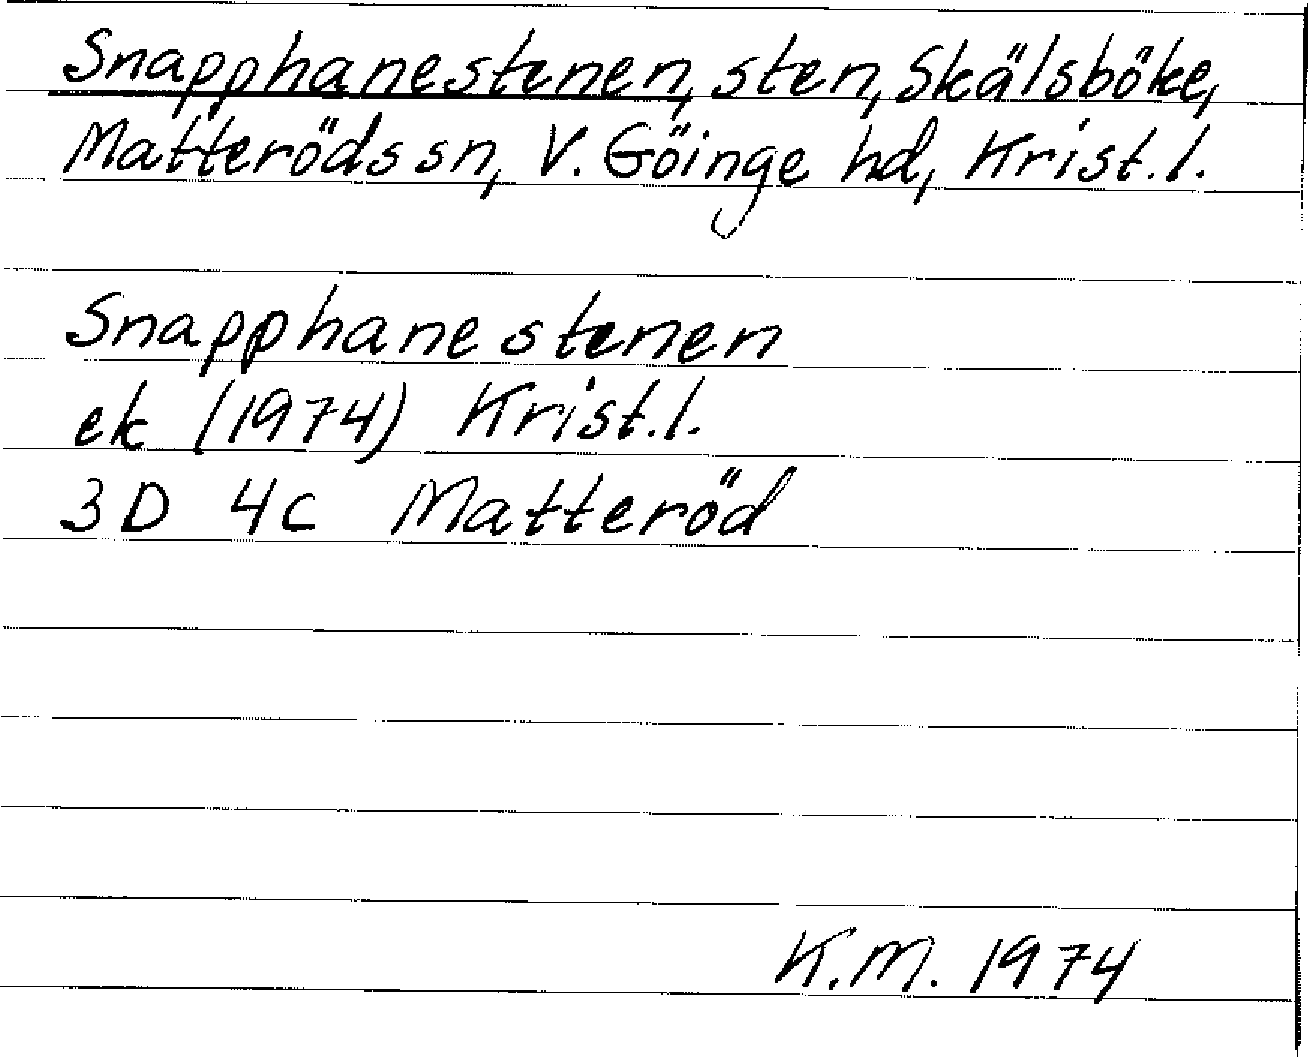 Snapphanestenen, sten, Skälsböke,
Matteröds sn, V. Göinge hd, Krist.l.
Snapphanestenen
ek (1974) Krist.l.
3D 4c Matteröd
K.M. 1974